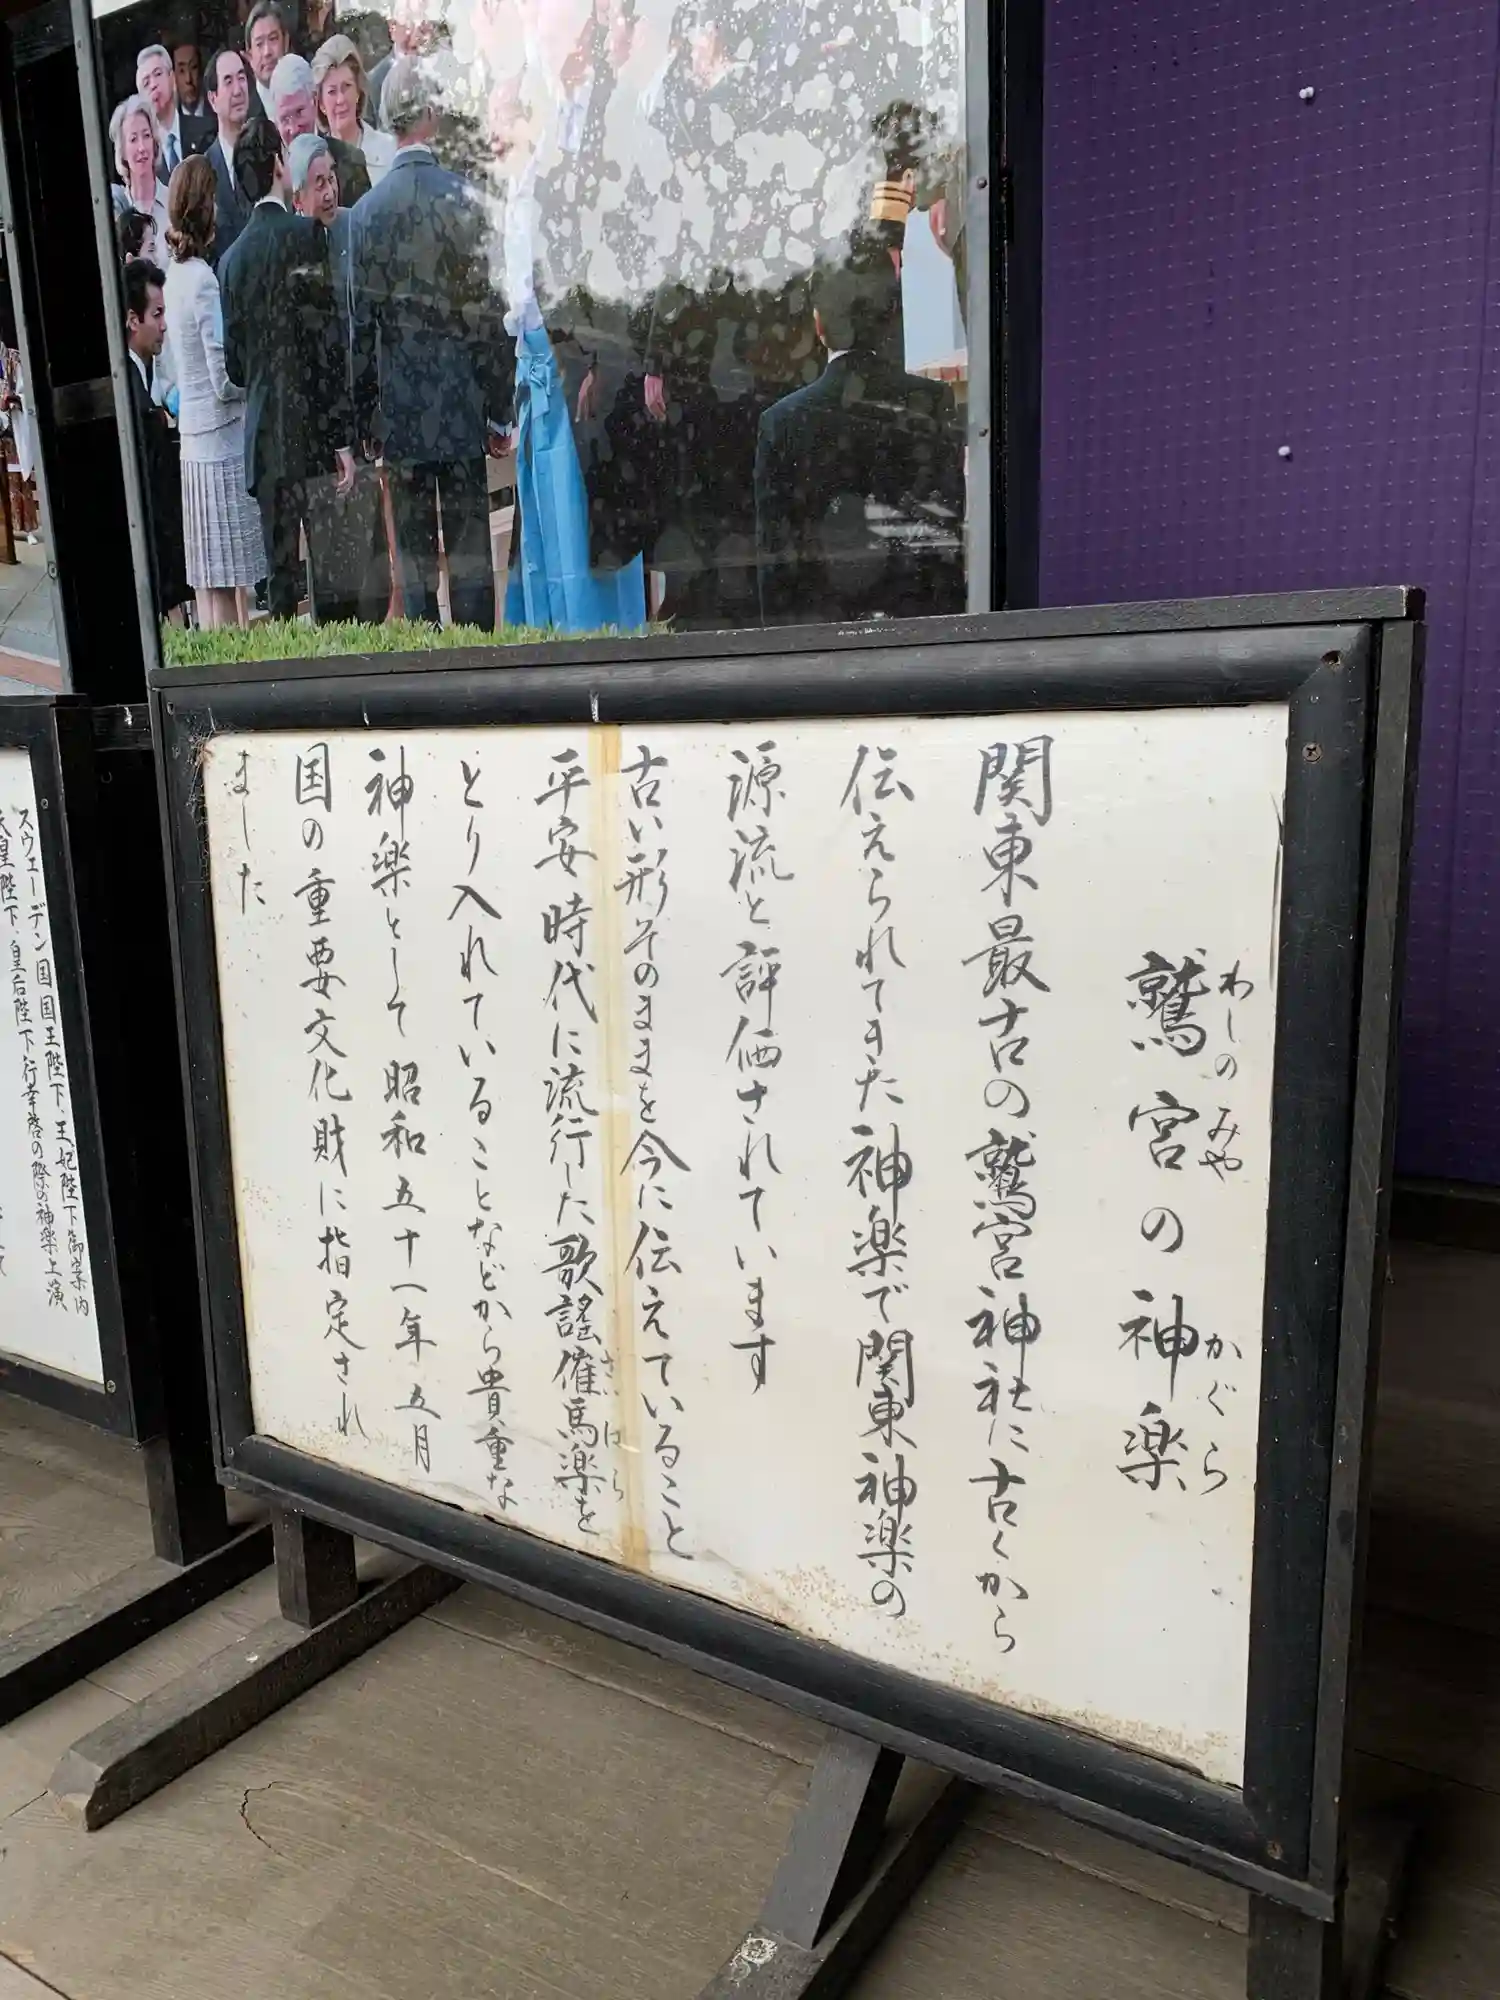 鷲宮の神楽
わしの みや かぐら
関東最古の鷲宮神社に古くから
伝えられてきた神楽で関東神楽の
源流と評価されています
古い形そのままを今に伝えていること
平安時代に流行した歌謡催馬楽を
さいばら
とり入れていることなどから貴重な
神楽として昭和五十一年五月
国の重要文化財に指定され
ました
スウェーデン国国王陛下、王妃陛下御案内
天皇陛下、皇后陛下行幸啓の際の神楽上演